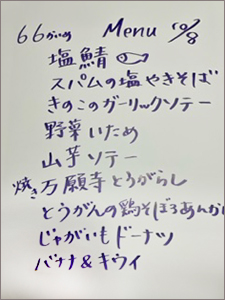 66かいめ Menu 10/8
塩鯖
スパムの塩やきそば
きのこのガーリックソテー
野菜いため
山芋ソテー
焼き万願寺とうがらし
とうがんの鶏そぼろあんか
じゃがいもドーナツ
バナナ&キウイ